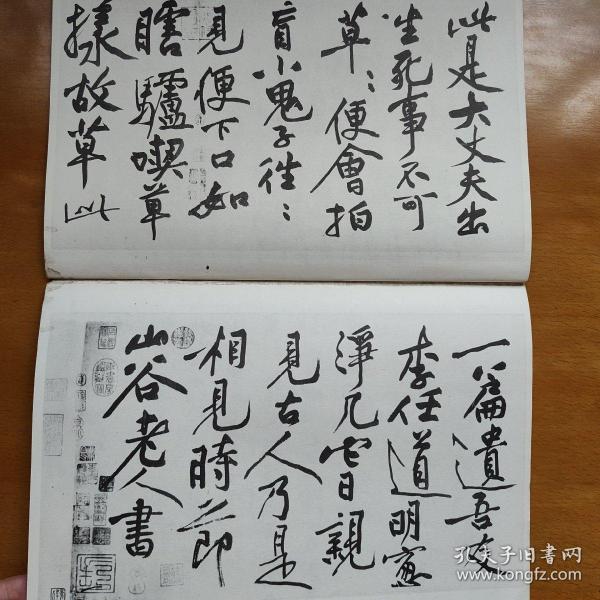 此是大丈夫出
生死事不可
草〻便會拍
盲小鬼子往〻
見便下口如
瞎驢喫草
樣故草此
一篇遺吾友
李任道明窻
淨几當日親
見古人乃是
相見時節
山谷老人書
孔夫子旧書网
www.kongfz.com